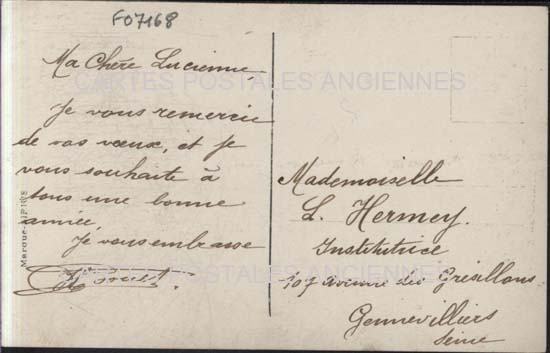 F07168
Ma Chère Lucienne
Je vous remercie
de vos vœux, et je
vous souhaite à
tous une bonne
année
Je vous embrasse
CARTES POSTALES ANCIENNES
CARTES POSTALES ANCIENNES
Mademoiselle
L. Hermey.
Institutrice
107 avenue des Grésillons
Gennevilliers
Seine